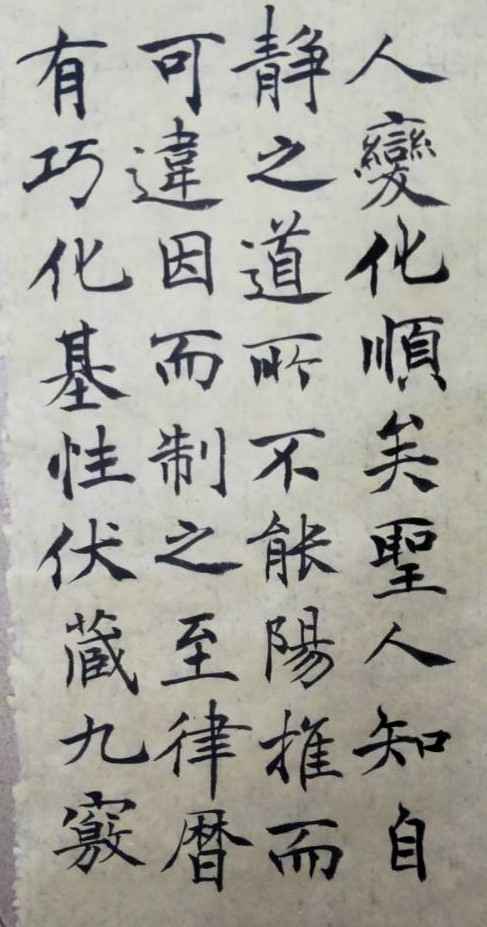 人變化順矣聖人知自
静之道所不能陽推而
可違因而制之至律暦
有巧化基性伏蔵九竅